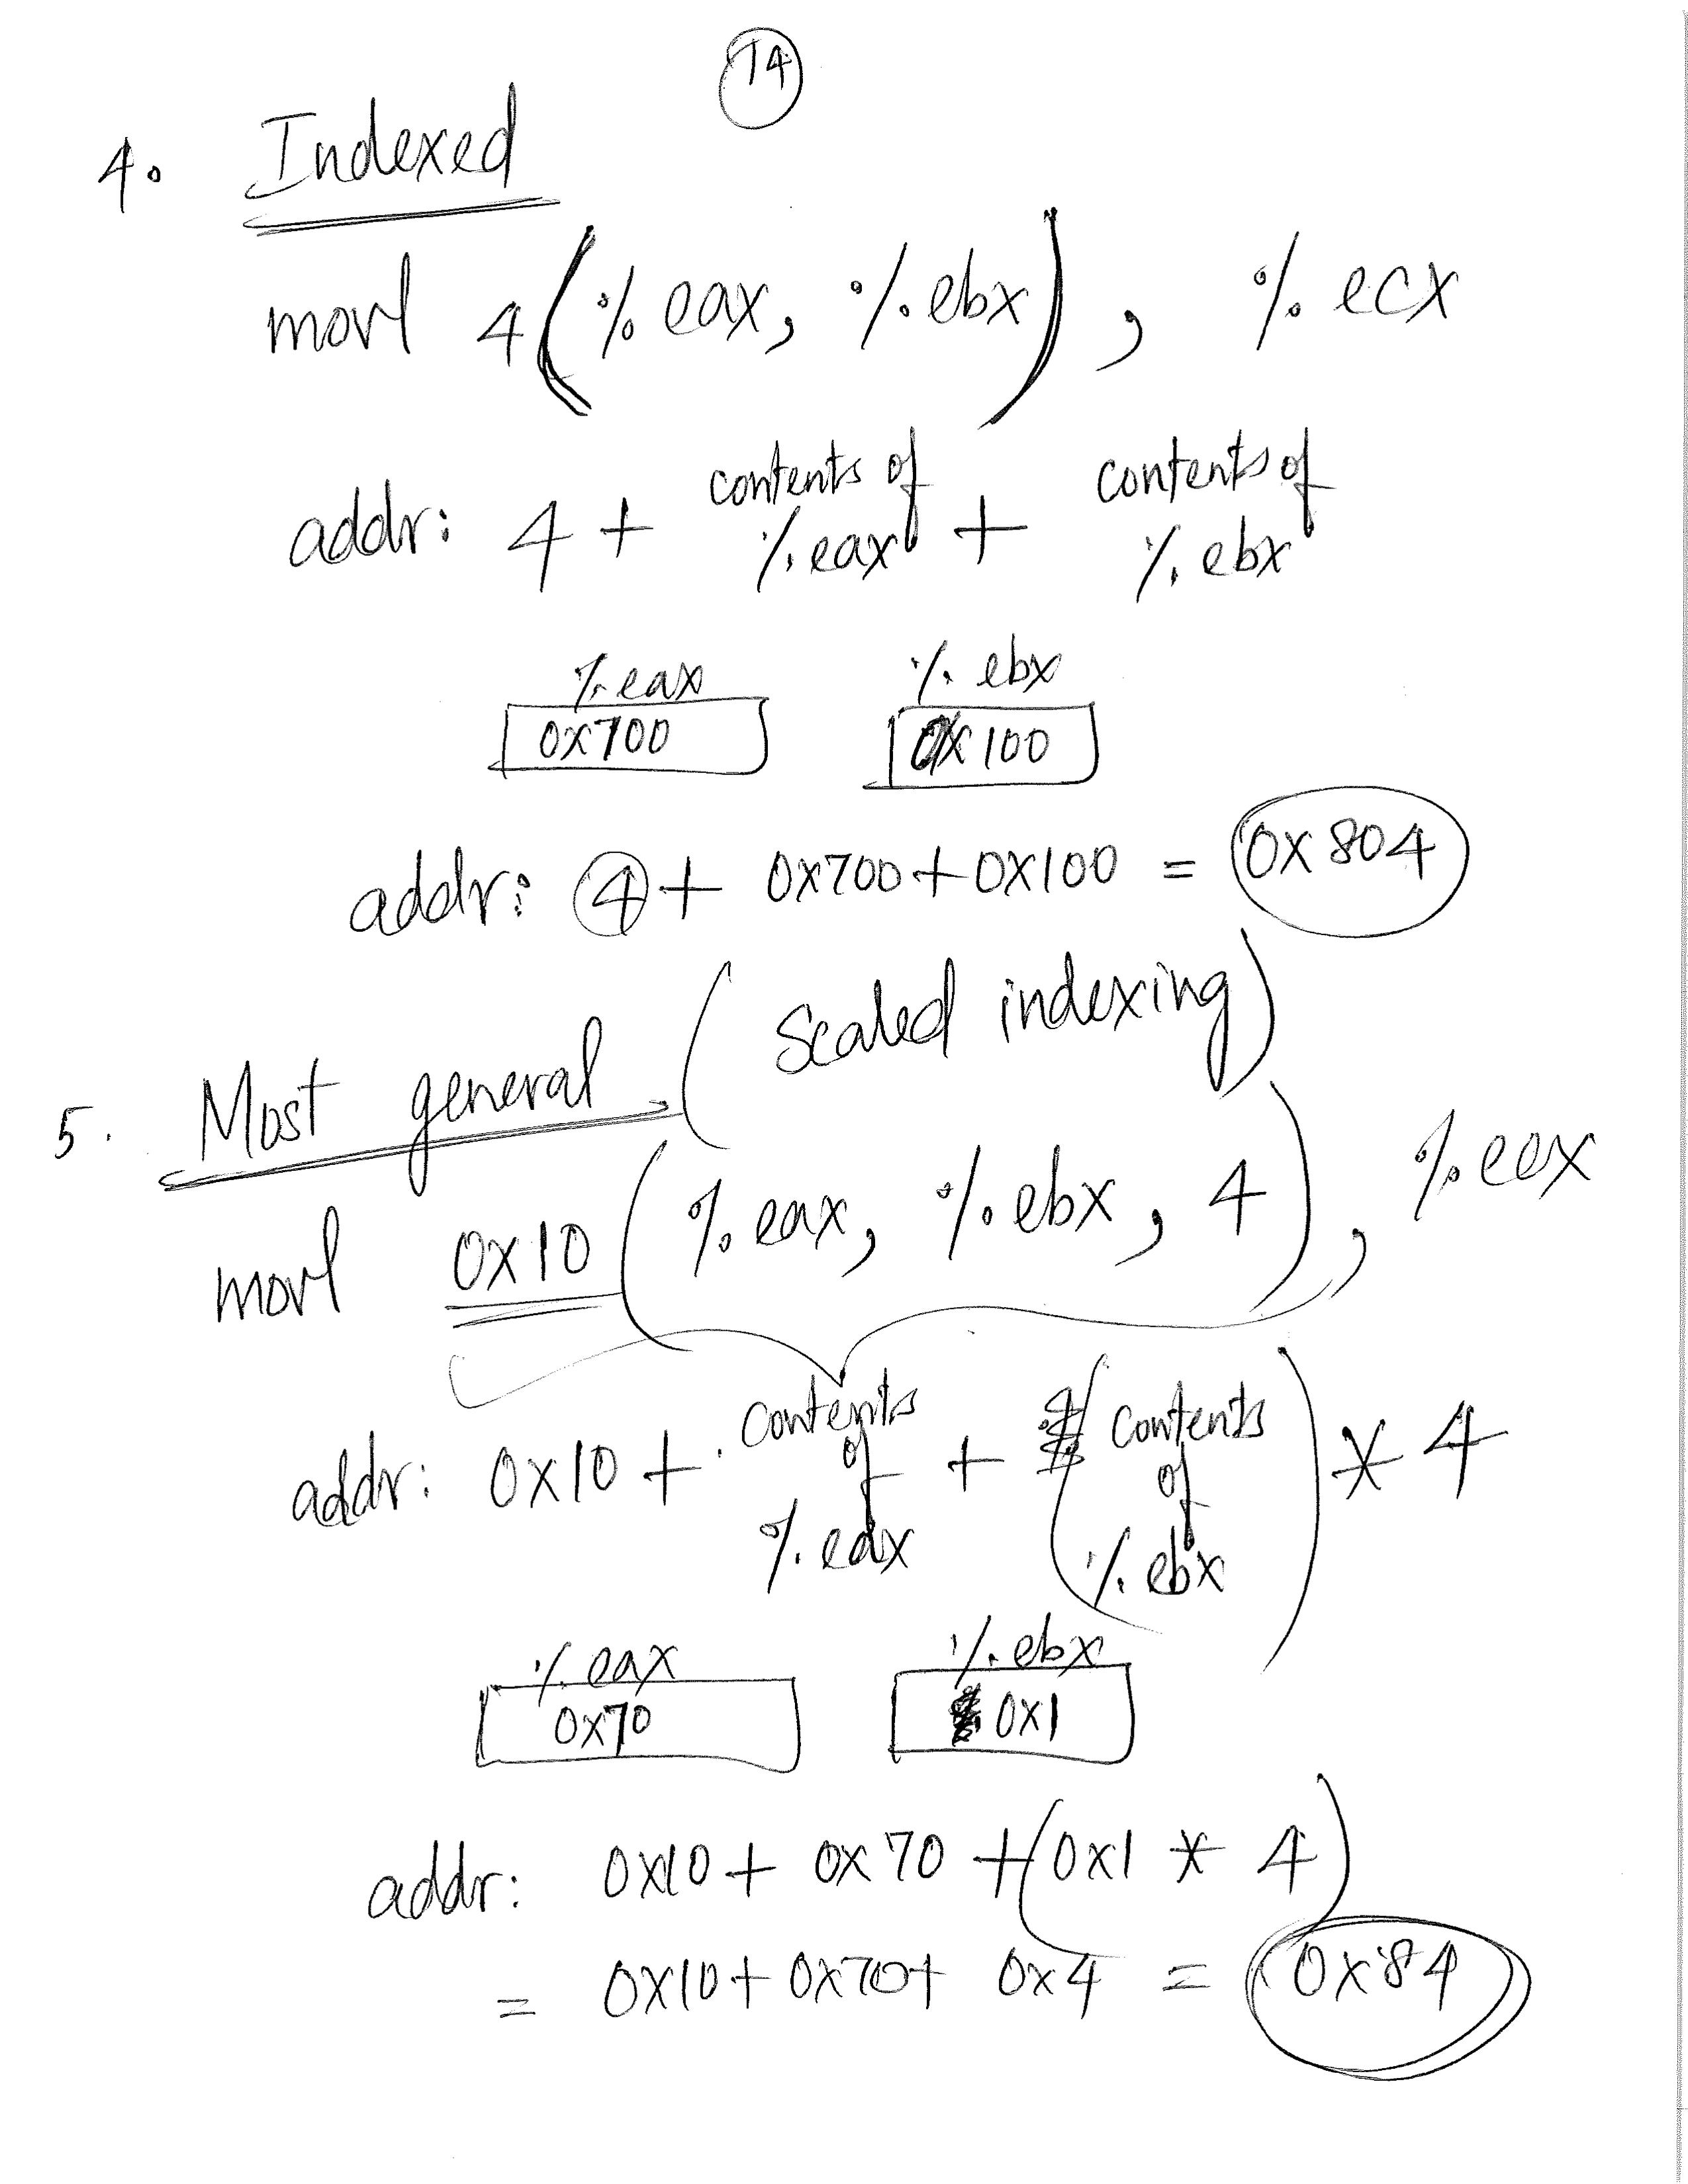 14
4. Indexed
movl 4(%eax, %ebx), %ecx
addr: 4 + contents of %eax + contents of %ebx
%eax %ebx
0x700 0x100
addr: 4 + 0x700 + 0x100 = 0x804
5. Most general (Scaled indexing)
movl 0x10 (%eax, %ebx, 4),
addr: 0x10 + contents of %eax + (contents of %ebx) * 4
%eax %ebx
0x70 0x1
addr: 0x10 + 0x70 + (0x1 * 4)
= 0x10 + 0x70 + 0x4 = 0x84